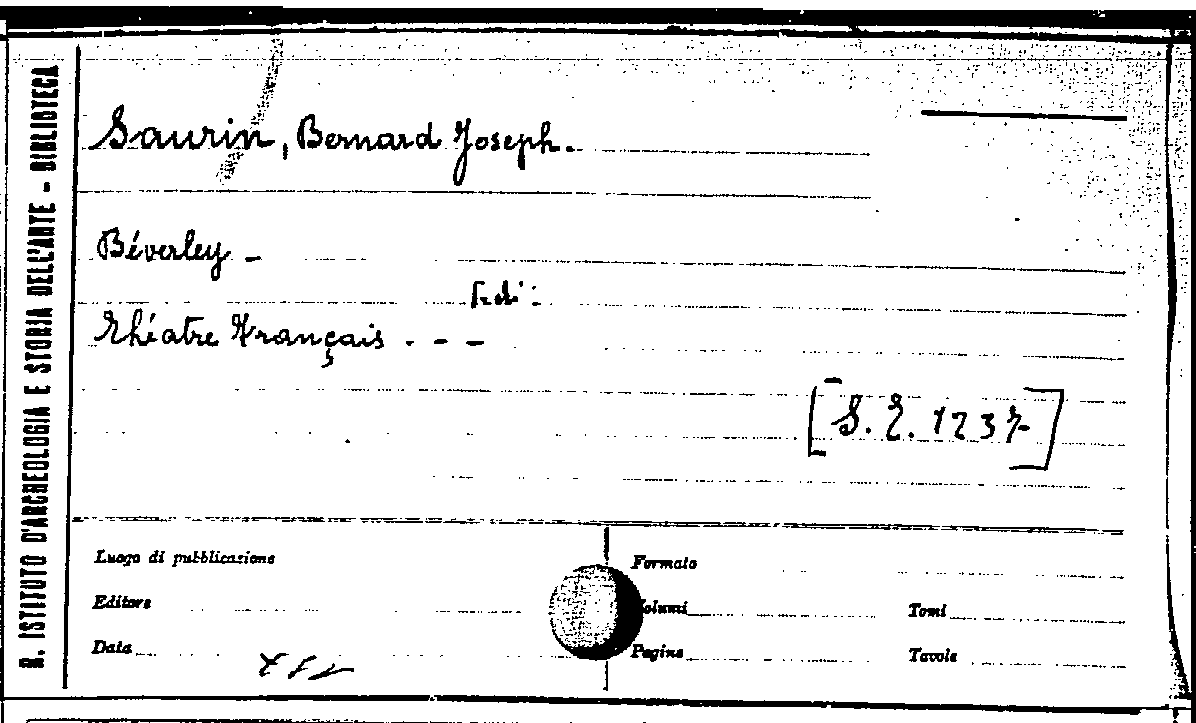 R. ISTITUTO D'ARCHEOLOGIA E STORIA DELL'ARTE - BIBLIOTECA
Saurin, Bernard Joseph.
Béverley -
Vedi:
Théatre Français - - -
[S. T. 1237]
Luogo di pubblicazione
Formato
Editore
Volumi
Tomi
Data
Pagine
Tavole